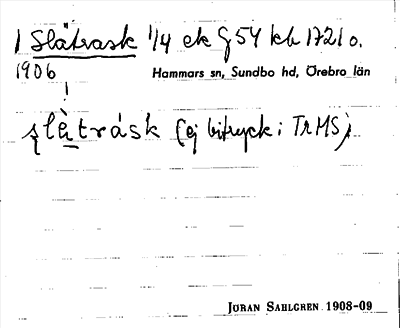 1 Slätrask 1/4 ek G 54 kb 1721 o.
1906
Hammars sn, Sundbo hd, Örebro län
!
slä̀trásk (ej bitryck i TRMS)
JÖRAN SAHLGREN 1908-09